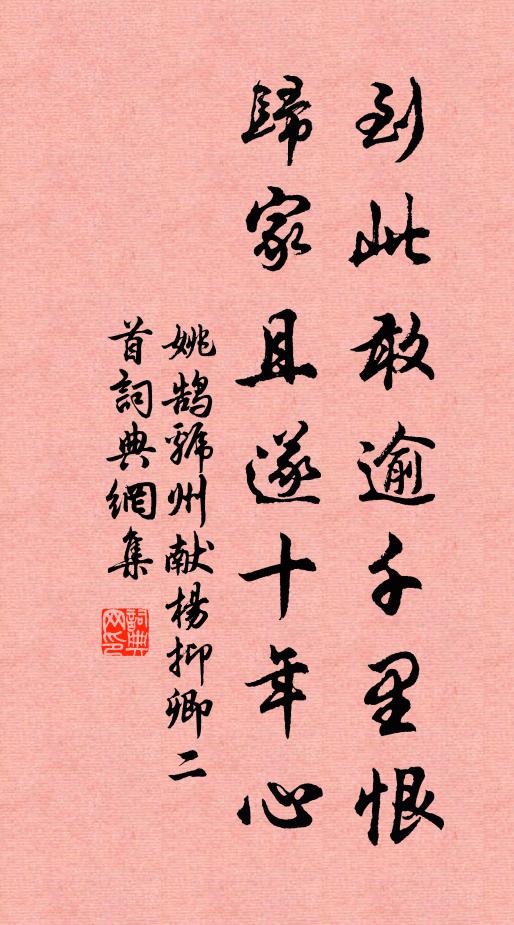 到此敢逾千里恨
歸家且遂十年心
姚鹄虢州献楊抑卿二
首詞典網集
詞典
网印